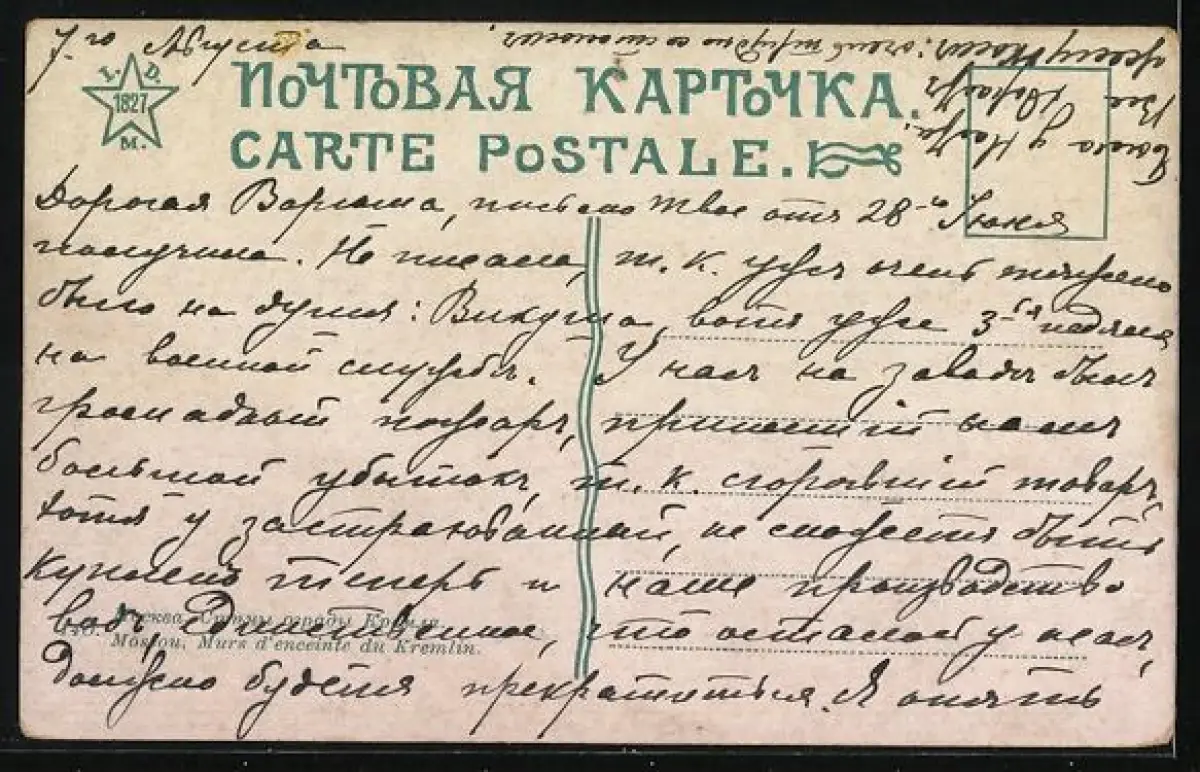 7-го Августа
L. D.
1827
M.
ПОЧТОВАЯ КАРТОЧКА.
CARTE POSTALE.
Дорогая Варюша, письмо твое отъ 28-го Іюня
получила. Не писала, т. к. ужъ очень тяжело
было на душѣ: Викуша, вотъ уже 3-ья недѣля
на военной службѣ. У насъ на заводѣ былъ
громадный пожаръ, принесшій намъ
большой убытокъ, т. к. сгорѣвшій товаръ,
хотя и застрахованный, не можетъ быть
купленъ теперь и наше производство
водъ единственное, что осталось у насъ,
должно будетъ прекратиться. Я опять
Москва. Стѣны ограды Кремля.
Moscou. Murs d'enceinte du Kremlin.
очень трудно
Варя